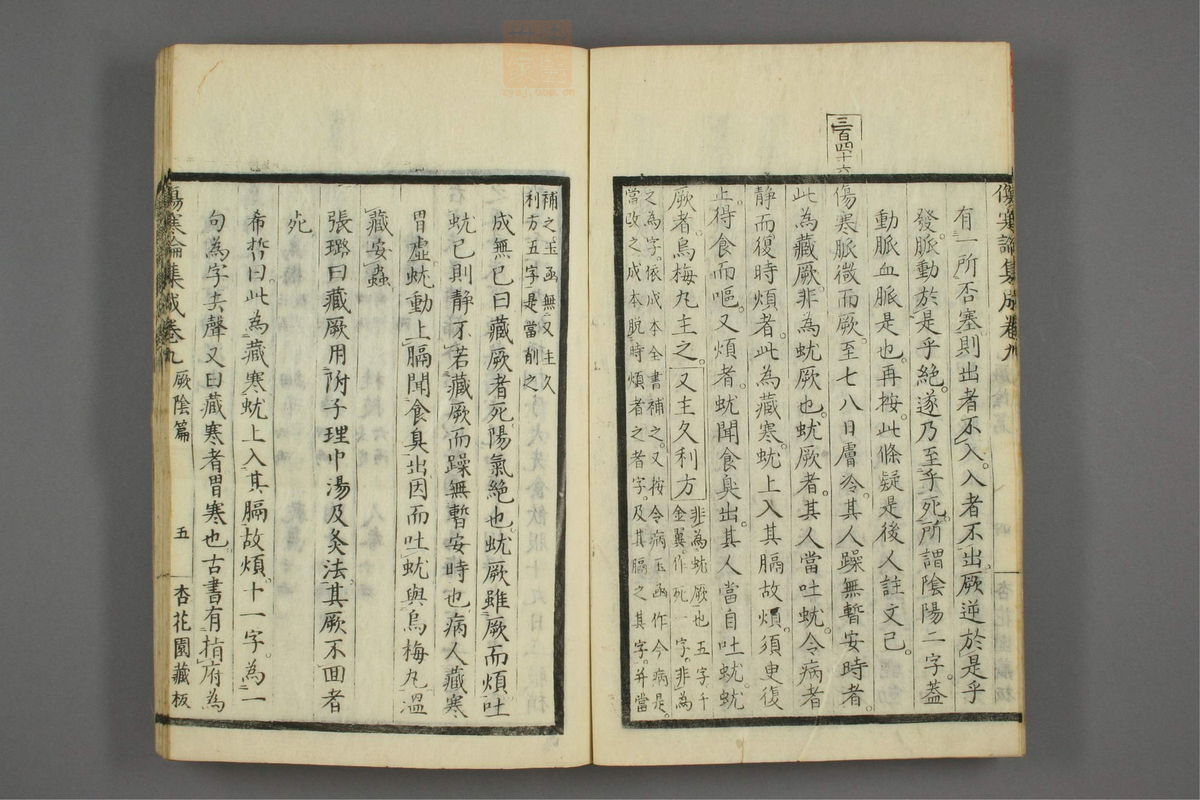 三百四十六
傷寒論集成卷九
有一所否塞則出者不入入者不出厥逆於是乎
發脈動於是乎絕遂乃至乎死所謂陰陽二字蓋
動脈血脈是也再按此條疑是後人註文已
傷寒脈微而厥至七八日膚冷其人躁無暫安時者
此為藏厥非為蚘厥也蚘厥者其人當吐蚘令病者
靜而復時煩者此為藏寒蚘上入其膈故煩須臾復
止得食而嘔又煩者蚘聞食臭出其人當自吐蚘蚘
厥者烏梅丸主之又主久利方
非為蚘厥也五字千
金翼作死一字非為
之為字依成本全書補之又按令病玉函作今病是
當改之成本脫時煩者之者字及其膈之其字并當
補之玉函無又主久
利方五字是當削之
成無已曰藏厥者死陽氣絕也蚘厥雖厥而煩吐
蚘已則靜不若藏厥而躁無暫安時也病人藏寒
胃虛蚘動上膈聞食臭出因而吐蚘與烏梅丸溫
藏安蟲
張璐曰藏厥用附子理中湯及灸法其厥不回者
死
希哲曰此為藏寒蚘上入其膈故煩十一字為一
句為字去聲又曰藏寒者胃寒也古書有指府為
傷寒論集成卷九 厥陰篇 五 杏花園藏板